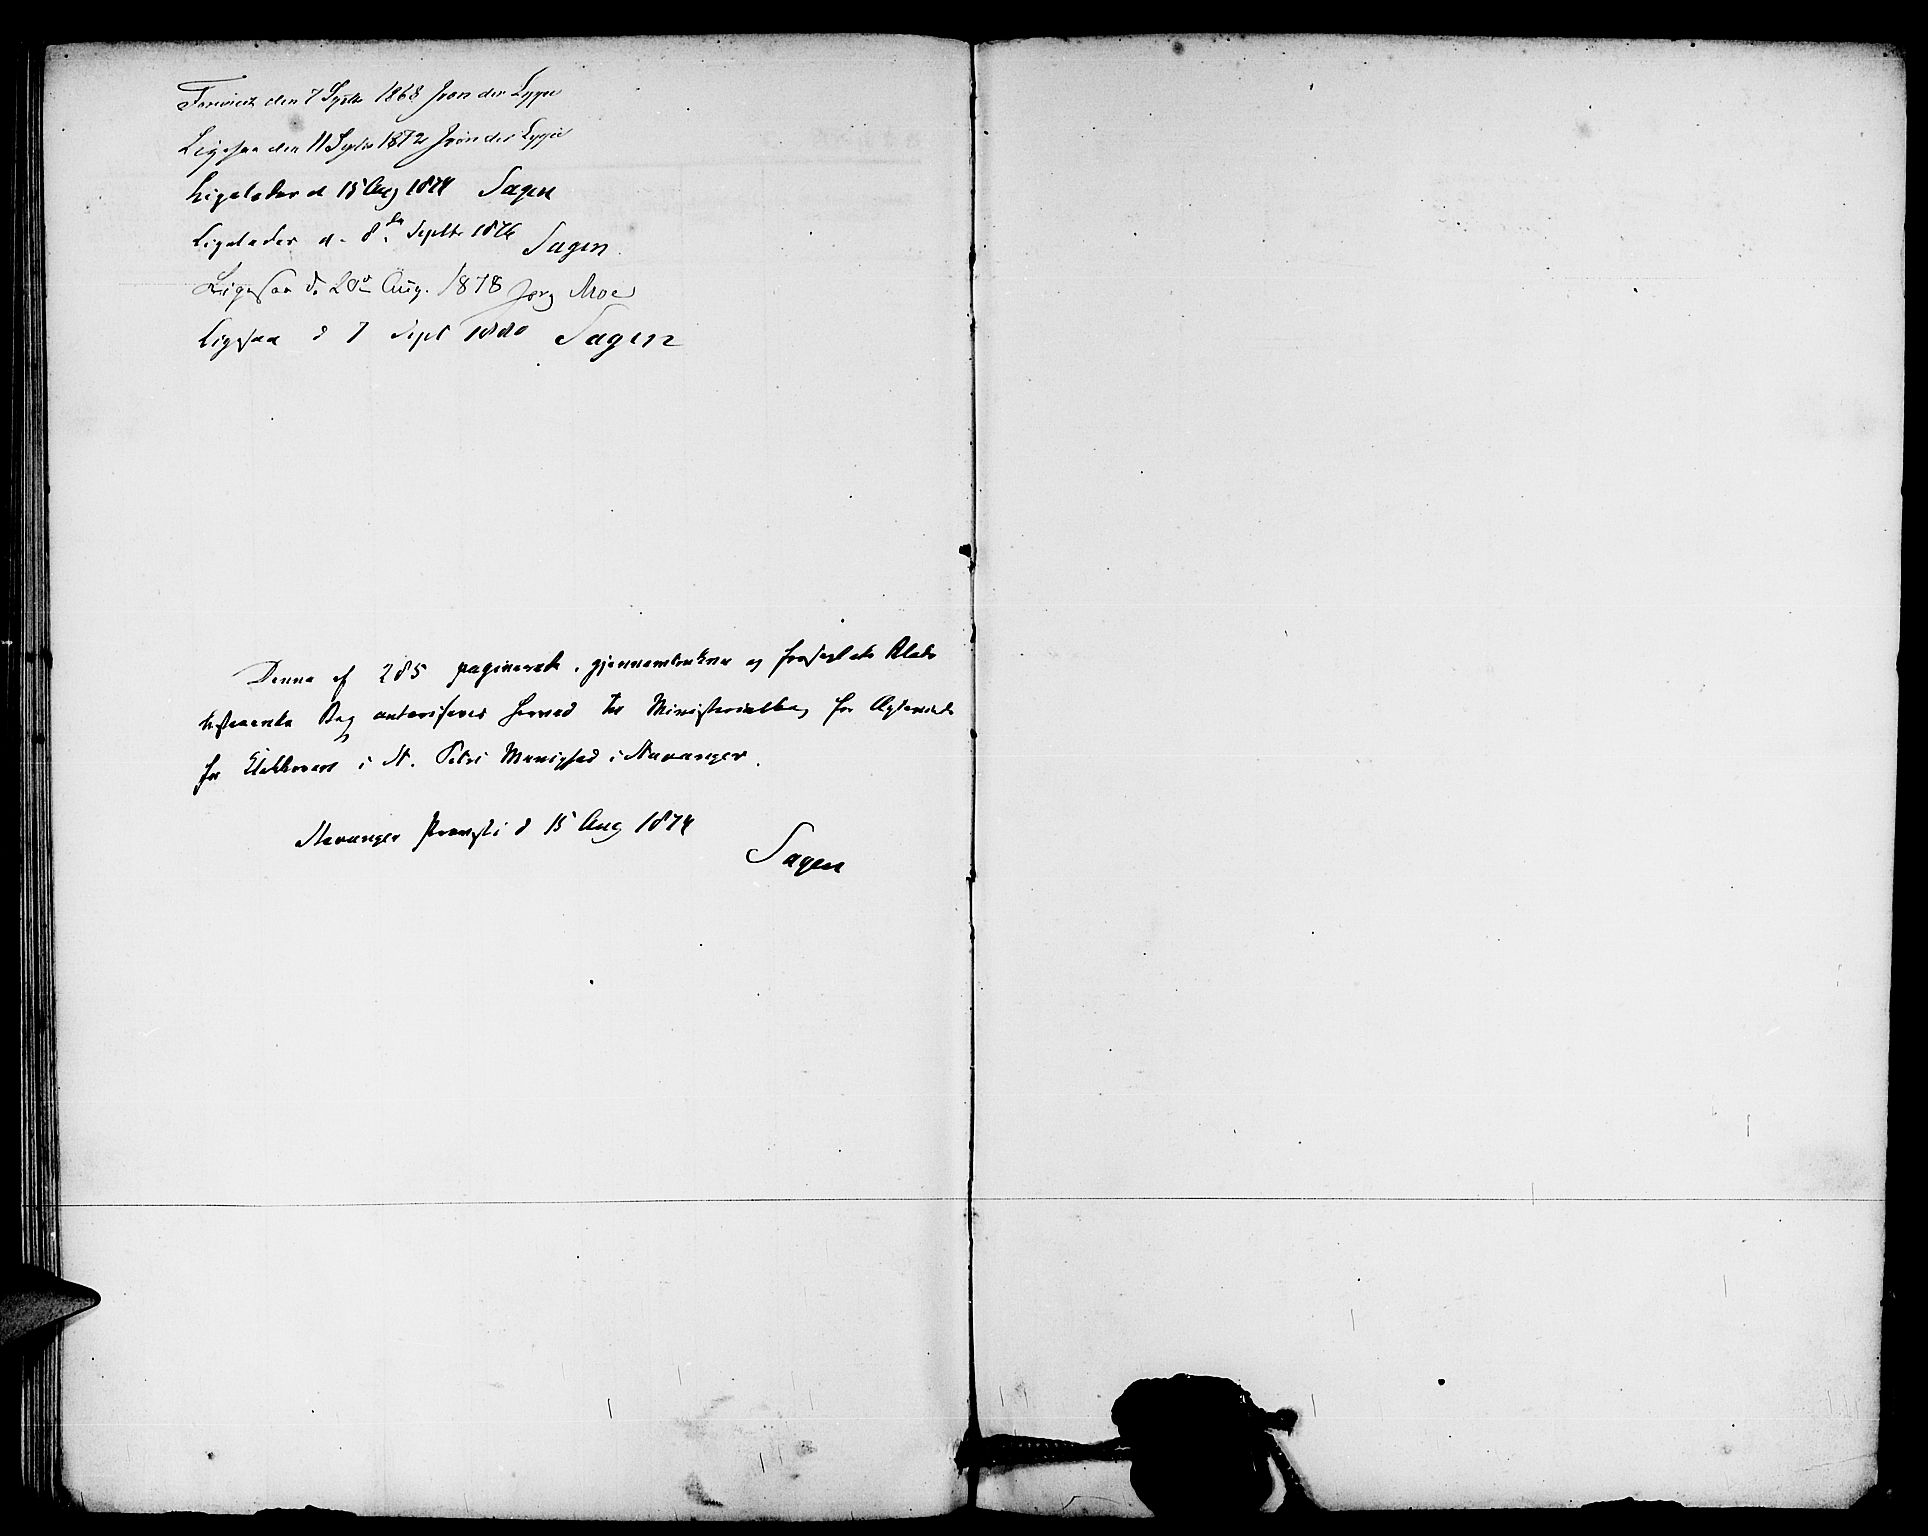 Foreviist den 7 Septbr 1868 J von der Lippe
Ligesaa den 11 Septbr 1872 J von der Lippe
Ligeledes d 15 Aug 1874 Sagen
Ligeledes d. 8de Septbr 1876 Sagen.
Ligesaa d. 20de Aug. 1878 Jørg Moe
Ligesaa d 7 Sept 1880 Sagen
Denne af 285 paginerede, gjennemtrukne og forseglede Blade
bestaaende Bog autoriseres herved til Ministerialbog for Ægteviede
for Klokkeren i St. Petri Menighed i Stavanger.
Stavanger Provsti d 15 Aug 1874
Sagen